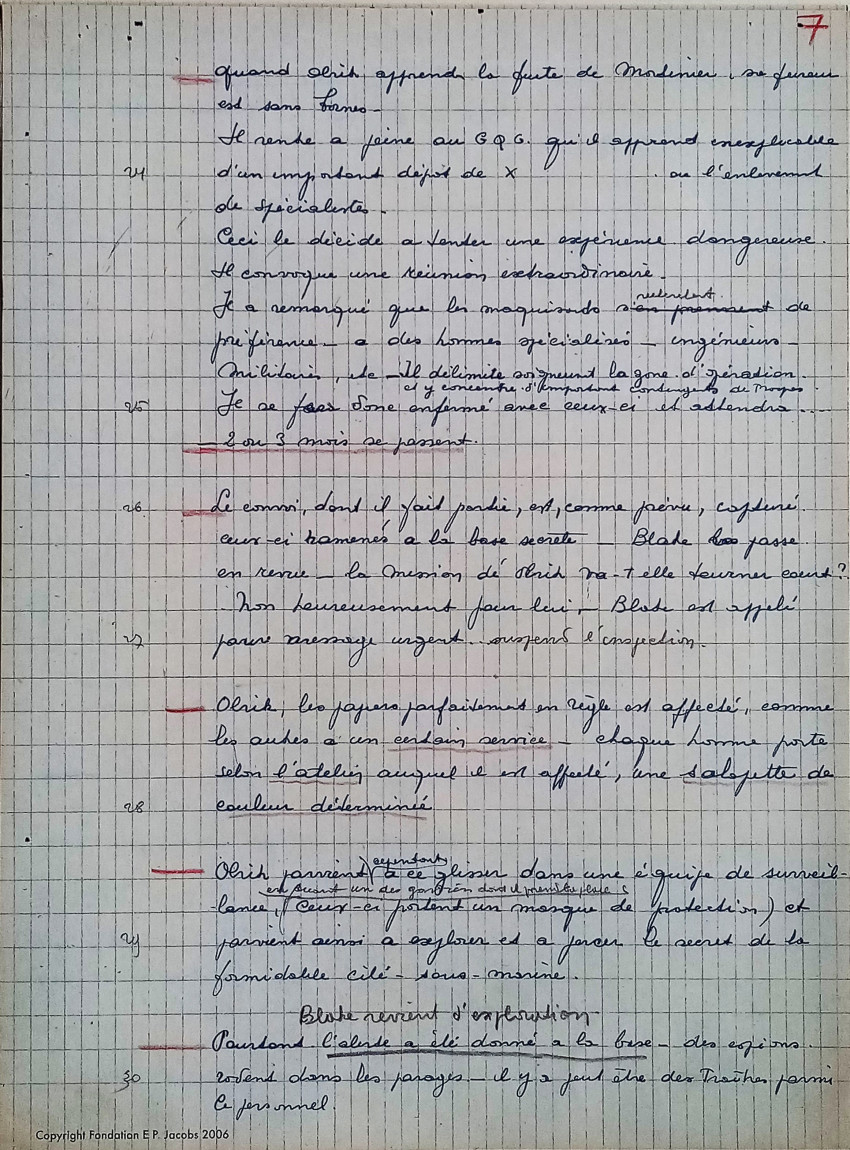 7
quand Olrik apprend la fuite de Mordinier, sa fureur
est sans bornes-
Il rentre a peine au G Q G. qu'il apprend inexplicable
24 d'un important dépôt de X ou l'enlevement
de spécialistes.
Ceci le décide a tenter une expérience dangereuse.
Il convoque une réunion extraordinaire.
Il a remarqué que les maquisards s'en prennent de
préférence - a des hommes spécialisés - ingénieurs -
Militaires, etc - Il délimite soigneusement la zone d'opération.
et y concentre d'important contingents de Troupes.
25 Il se donc enfermé avec ceux-ci et attendra ....
- 2 ou 3 mois se passent.
26 Le convoi, dont il fait partie, est, comme prévu, capturé.
ceux-ci ramenés a la base secrete - Blake passe
en revue - la mission de Olrik va-t elle tourner court ?
.. Non heureusement pour lui, - Blake est appelé
27 message urgent .. suspend l'inspection.
Olrik, les papiers parfaitement en règle est affecté, comme
les autres à un certain service - chaque homme porte
selon l'atelier auquel il est affecté, une salopette de
28 couleur déterminée
Olrik parvient cependant a ce glisser dans une équipe de surveil-
en tuant un des gardien dont il prendra place
-lance, (Ceux-ci portent un masque de protection) et
29 parvient ainsi a explorer et a percer le secret de la
formidable cité - sous - marine.
Blake revient d'exploration
Pourtant l'alerte a été donné a la base - des espions.
30 rodent dans les parages - il y a peut être des Traîtres parmi
le personnel.
Copyright Fondation E P. Jacobs 2006